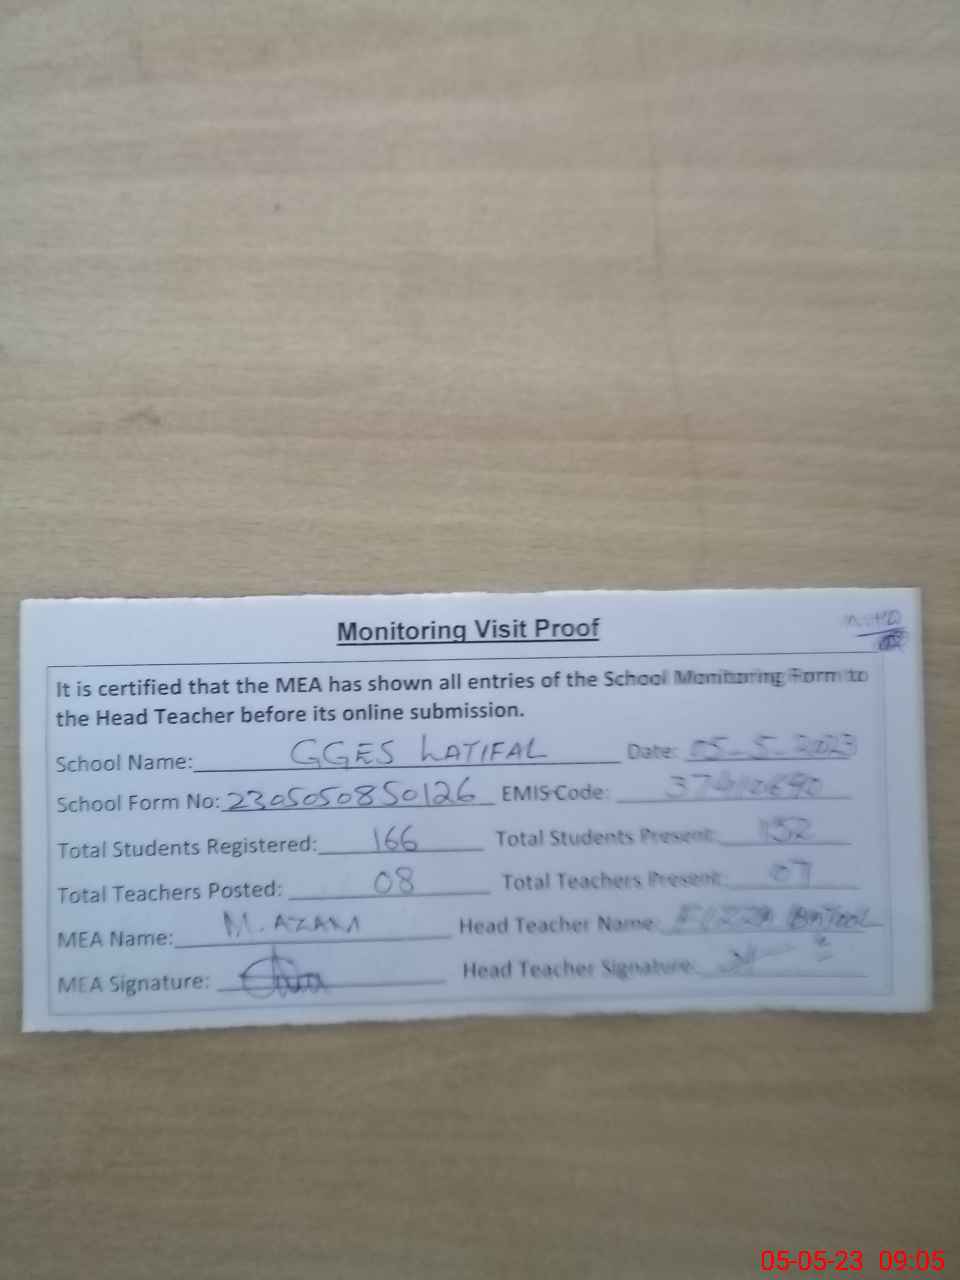 Monitoring Visit Proof
It is certified that the MEA has shown all entries of the School Monitoring Form to
the Head Teacher before its online submission.
School Name: GGES LATIFAL Date: 05-5-2023
School Form No: 2305050850126 EMIS Code:
Total Students Registered: 166 Total Students Present: 152
Total Teachers Posted: 08 Total Teachers Present: 07
MEA Name: M. AZAM Head Teacher Name: FIZZA BATOOL
MEA Signature: Head Teacher Signature:
05-05-23 09:05